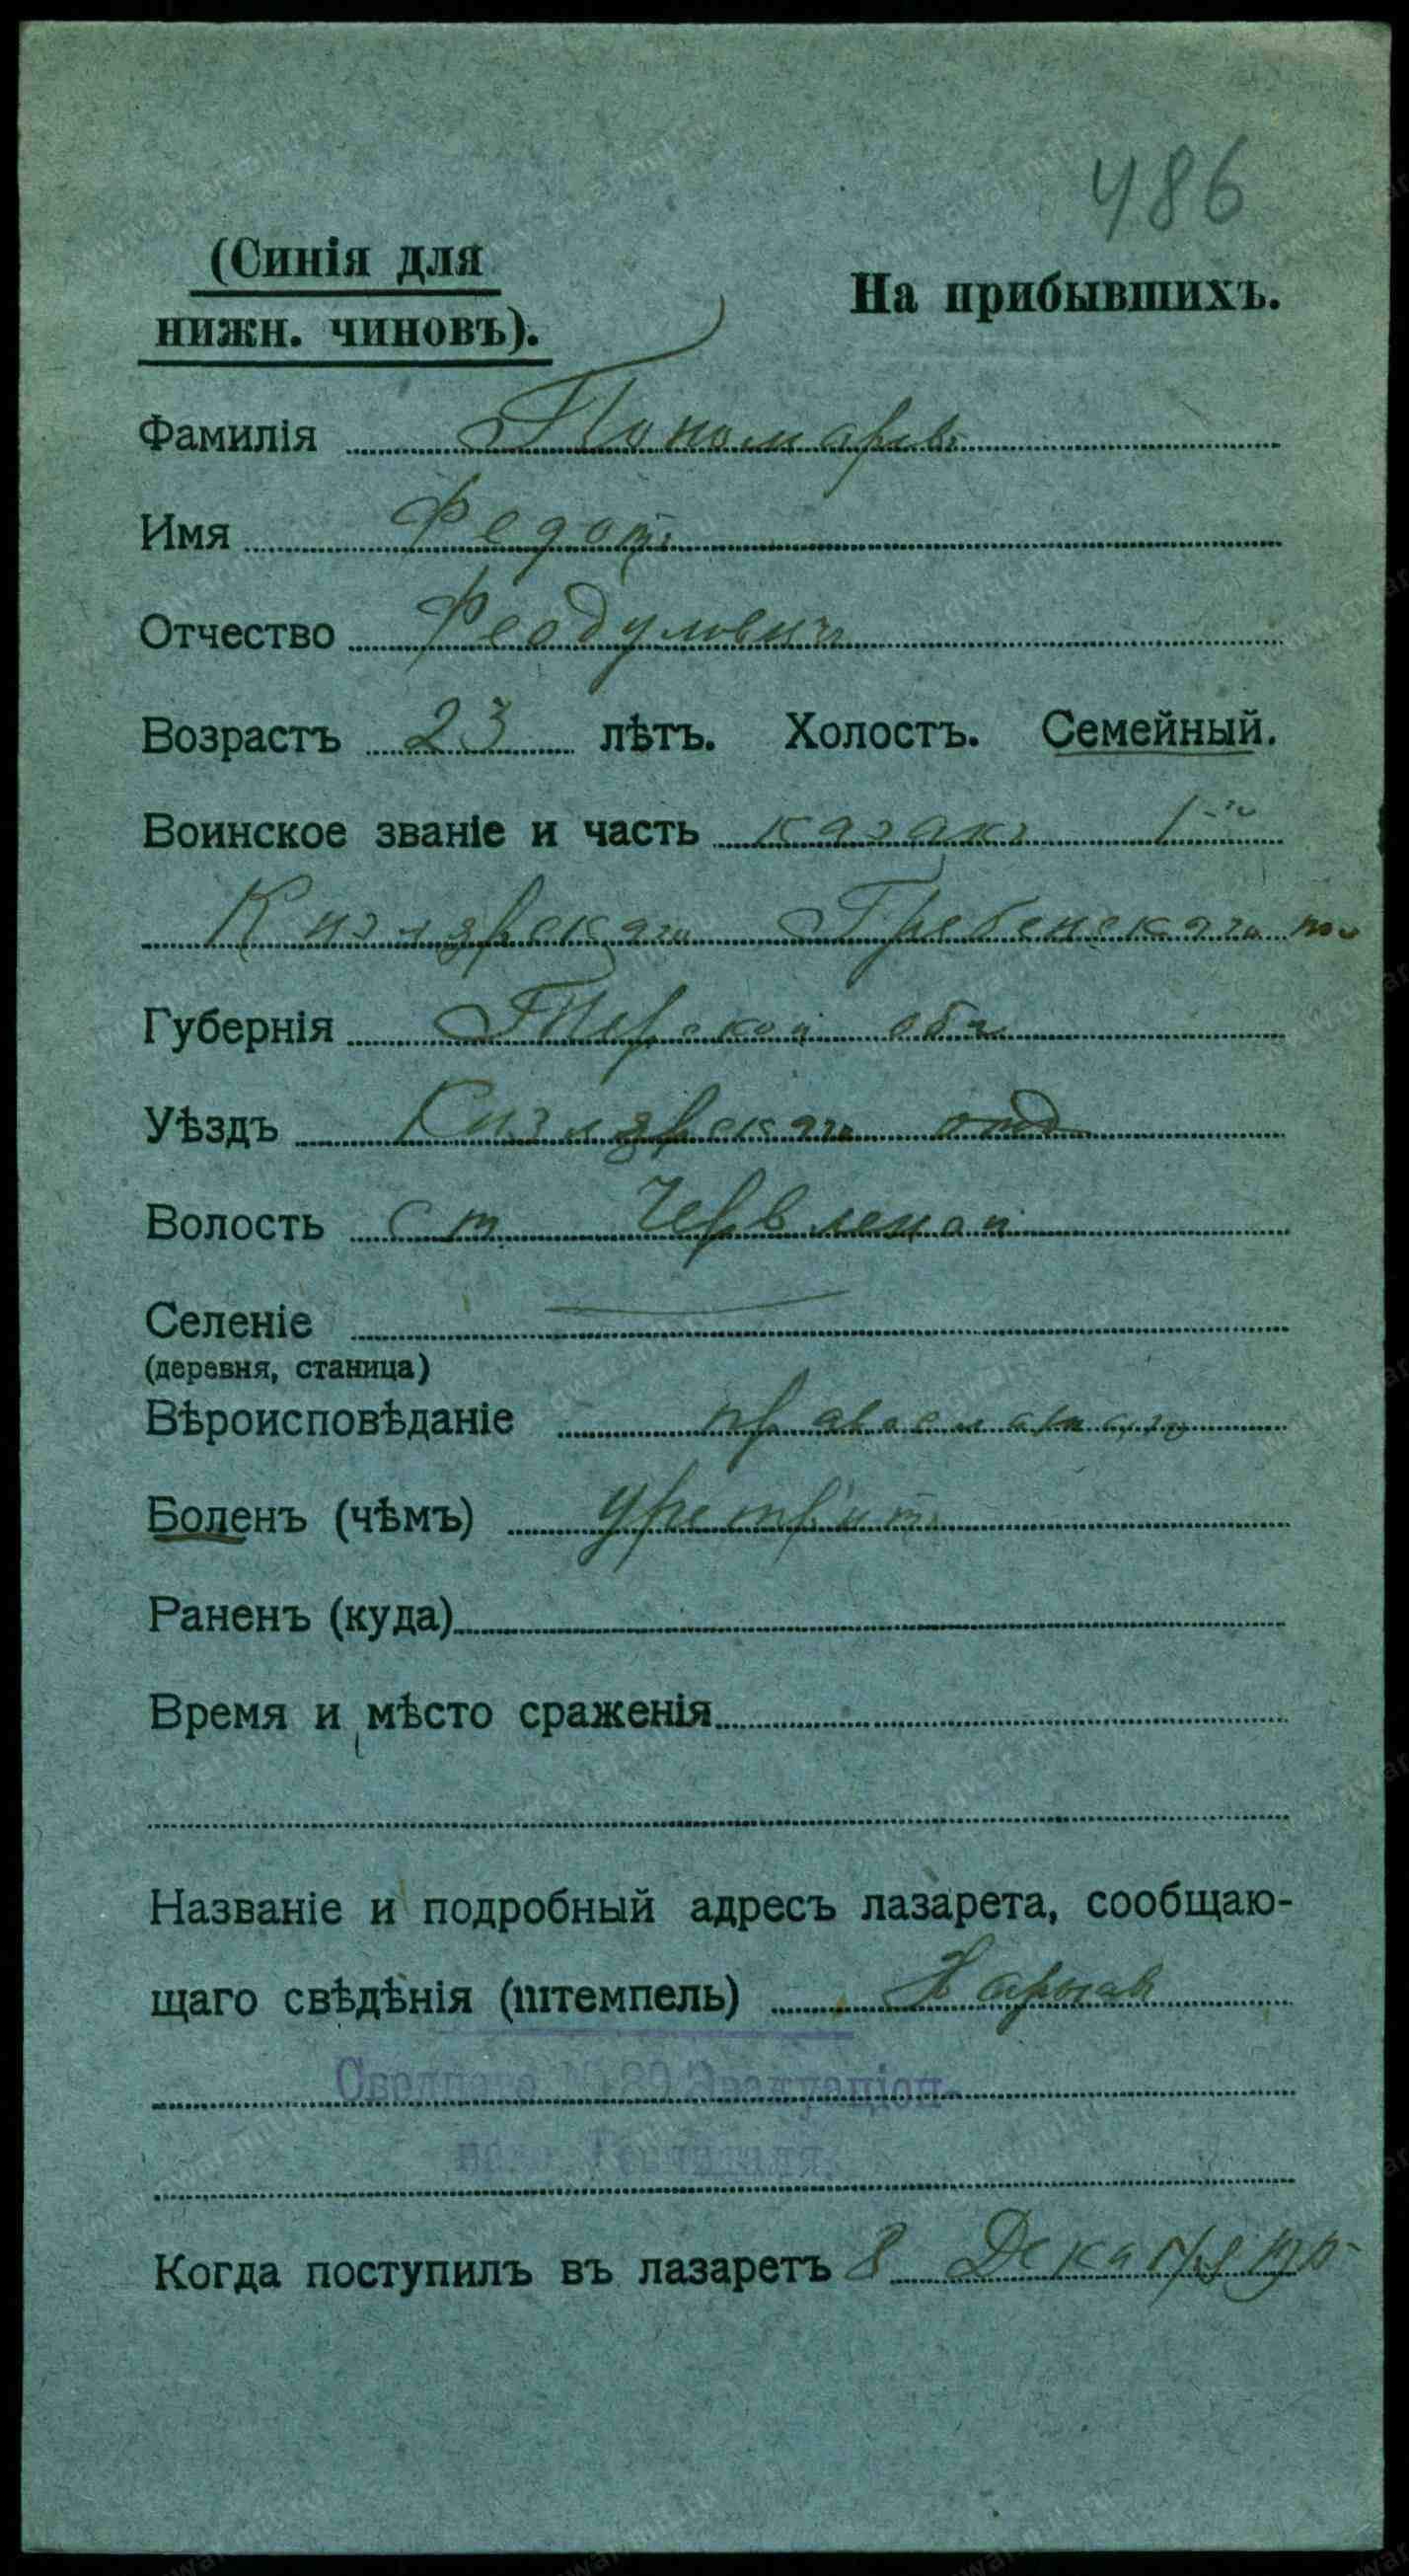 486
(Синія для
нижн. чиновъ).
На прибывшихъ.
Фамилія Пономаревъ
Имя Федотъ
Отчество Феодуловичъ
Возрастъ 23 лѣтъ. Холостъ. Семейный.
Воинское званіе и часть казакъ 1-й
Кизлярскаго Гребенскаго по
Губернія Терской об.
Уѣздъ Кизлярскаго отд
Волость Ст Червленой
Селеніе
(деревня, станица)
Вѣроисповѣданіе православнаго
Боленъ (чѣмъ) Уретритъ
Раненъ (куда)
Время и мѣсто сраженія
Названіе и подробный адресъ лазарета, сообщаю-
щаго свѣдѣнія (штемпель)
Когда поступилъ въ лазаретъ 8 Декабря